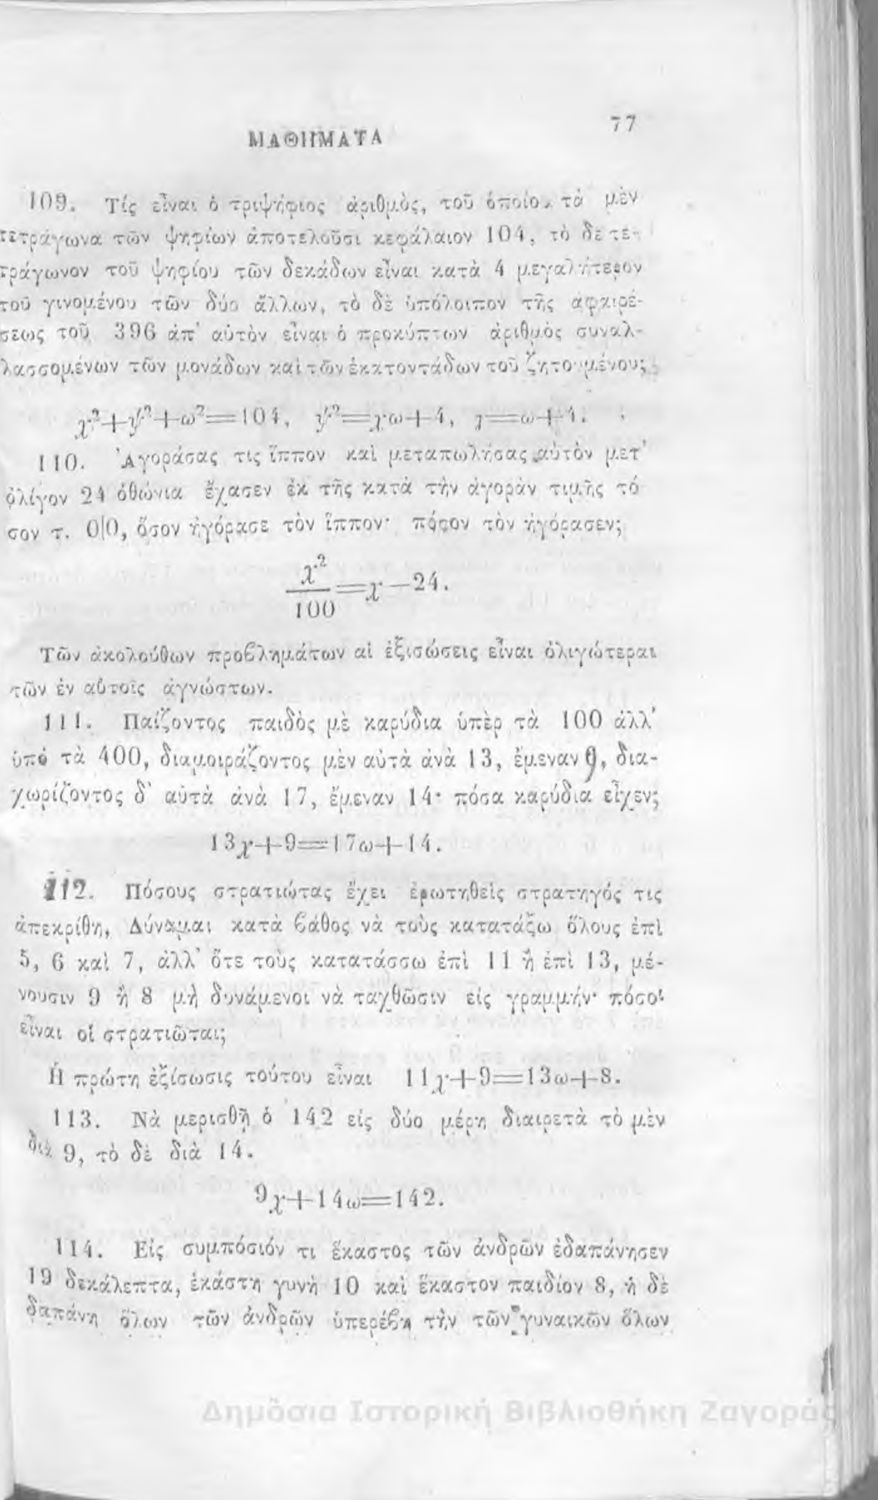 ΜΑΘΗΜΑΤΑ
77
109. Τίς εἶναι ὁ τριψήφιος ἀριθμὸς, τοῦ ὁποίου τὰ μὲν
τετράγωνα τῶν ψηφίων ἀποτελοῦσι κεφάλαιον 104, τὸ δὲ τε-
τράγωνον τοῦ ψηφίου τῶν δεκάδων εἶναι κατὰ 4 μεγαλήτερον
τοῦ γινομένου τῶν δύο ἄλλων, τὸ δὲ ὑπόλοιπον τῆς ἀφαιρέ-
σεως τοῦ 396 ἀπ' αὐτὸν εἶναι ὁ προκύπτων ἀριθμὸς συναλ-
λασσομένων τῶν μονάδων καὶ τῶν ἑκατοντάδων τοῦ ζητουμένου;
χ²+ψ²+ω²=104, ψ²=χω+4, χ=ω+4.
110. Ἀγοράσας τις ἵππον καὶ μεταπωλήσας αὐτὸν μετ'
ὀλίγον 24 ὀθώνια ἔχασεν ἐκ τῆς κατὰ τὴν ἀγορὰν τιμῆς τό
σον τ. 0|0, ὅσον ἠγόρασε τὸν ἵππον· πόσον τὸν ἠγόρασεν;
χ²
100
=χ—24.
Τῶν ἀκολούθων προβλημάτων αἱ ἐξισώσεις εἶναι ὀλιγώτεραι
τῶν ἐν αὐτοῖς ἀγνώστων.
111. Παίζοντος παιδὸς μὲ καρύδια ὑπὲρ τὰ 100 ἀλλ'
ὑπὸ τὰ 400, διαμοιράζοντος μὲν αὐτὰ ἀνὰ 13, ἔμεναν 9, δια-
χωρίζοντος δ' αὐτὰ ἀνὰ 17, ἔμεναν 14· πόσα καρύδια εἶχεν;
13χ+9=17ω+14.
112. Πόσους στρατιώτας ἔχει ἐρωτηθεὶς στρατηγός τις
ἀπεκρίθη, Δύναμαι κατὰ βάθος νὰ τοὺς κατατάξω ὅλους ἐπὶ
5, 6 καὶ 7, ἀλλ' ὅτε τοὺς κατατάσσω ἐπὶ 11 ἢ ἐπὶ 13, μέ-
νουσιν 9 ἢ 8 μὴ δυνάμενοι νὰ ταχθῶσιν εἰς γραμμήν· πόσοι
εἶναι οἱ στρατιῶται;
Ἡ πρώτη ἐξίσωσις τούτου εἶναι 11χ+9=13ω+8.
113. Νὰ μερισθῇ ὁ 142 εἰς δύο μέρη διαιρετὰ τὸ μὲν
διὰ 9, τὸ δὲ διὰ 14.
9χ+14ω=142.
114. Εἰς συμπόσιόν τι ἕκαστος τῶν ἀνδρῶν ἐδαπάνησεν
19 δεκάλεπτα, ἑκάστη γυνὴ 10 καὶ ἕκαστον παιδίον 8, ἡ δὲ
δαπάνη ὅλων τῶν ἀνδρῶν ὑπερέβη τὴν τῶν γυναικῶν ὅλων
Δημόσια Ιστορική Βιβλιοθήκη Ζαγοράς